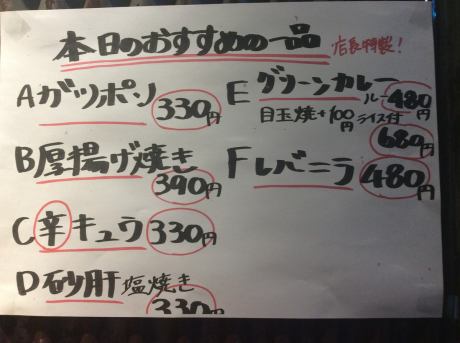 本日のおすすめの一品
店長特製!
Aガツポン 330円
B厚揚げ焼き 390円
C辛キュウ 330円
D砂肝塩焼き 330円
Eグリーンカレー ルー480円
目玉焼+100円 ライス付680円
Fレバニラ 480円